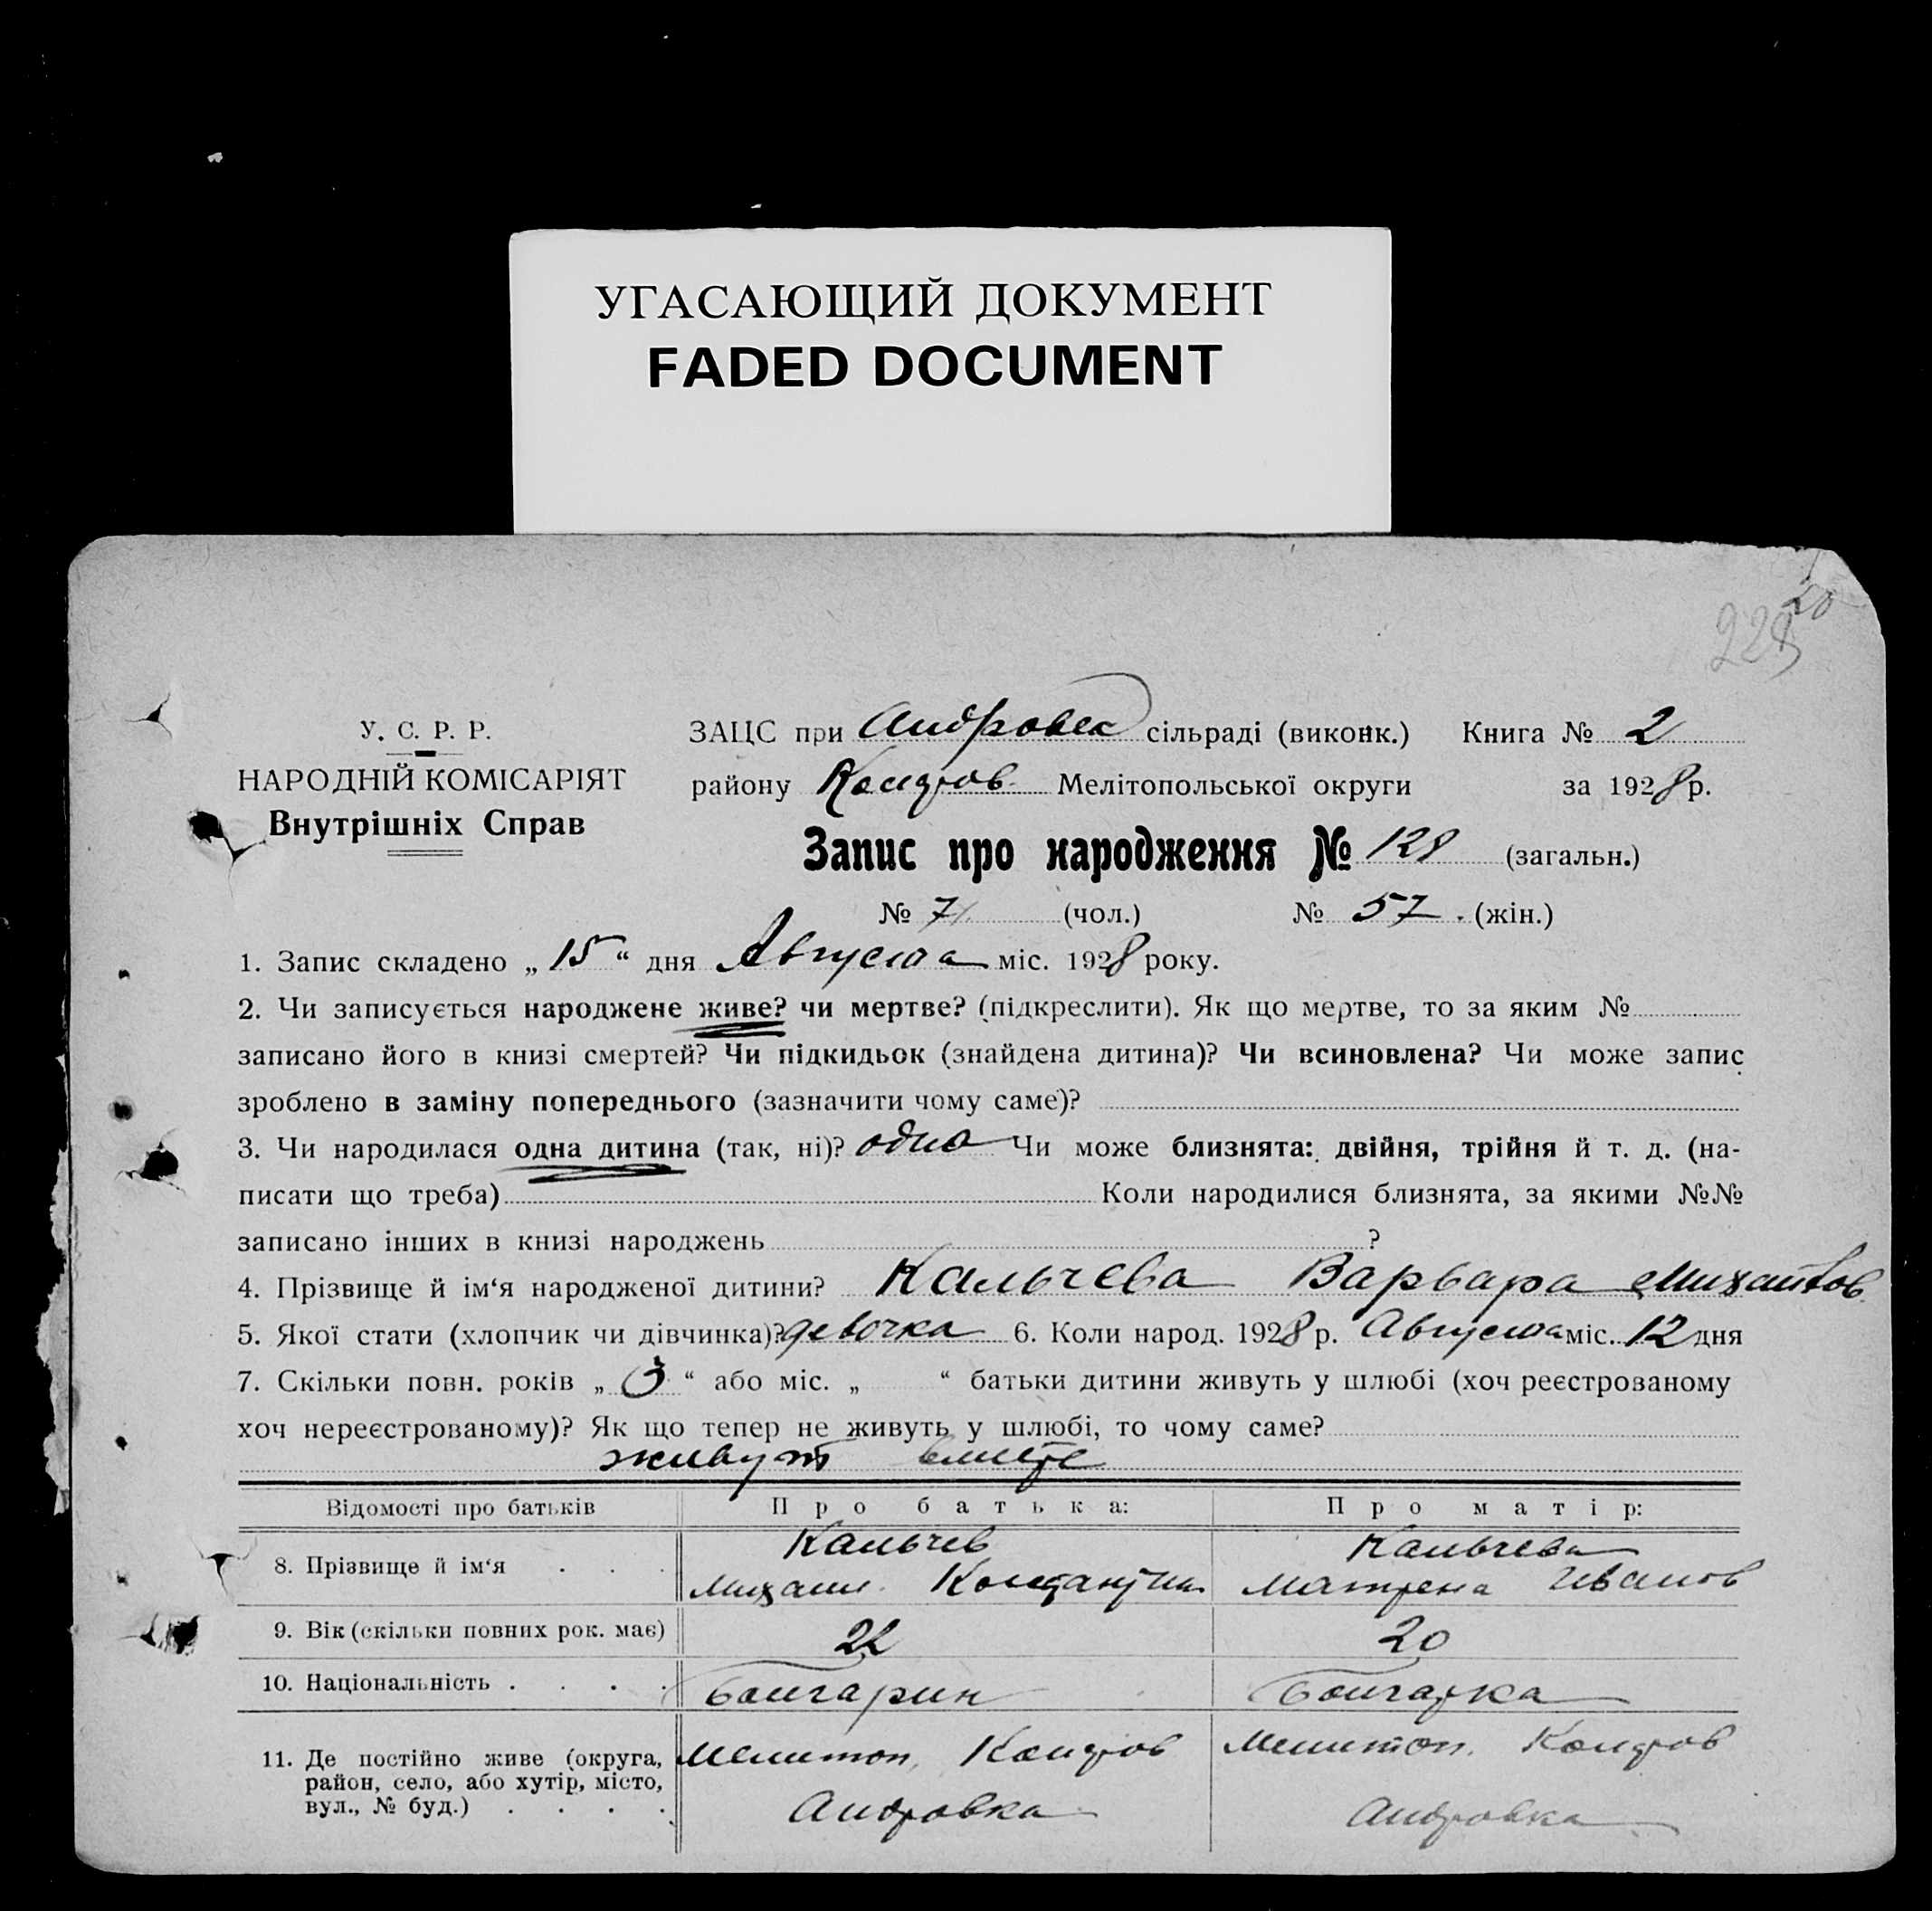 УГАСАЮЩИЙ ДОКУМЕНТ
FADED DOCUMENT
20
228
У. С. Р. Р.
НАРОДНІЙ КОМІСАРІЯТ
Внутрішніх Справ
ЗАЦС при Андровск сільраді (виконк.) Книга № 2
району Мелітопольської округи за 1928 р.
Запис про народження № 128 (загальн.)
№ 71 (чол.) № 57 (жін.)
1. Запис складено „ 15 “ дня Августа міс. 1928 року.
2. Чи записується народжене живе? чи мертве? (підкреслити). Як що мертве, то за яким №
записано його в книзі смертей? Чи підкидьок (знайдена дитина)? Чи всиновлена? Чи може запис
зроблено в заміну попереднього (зазначити чому саме)?
3. Чи народилася одна дитина (так, ні)? одна Чи може близнята: двійня, трійня й т. д. (на-
писати що треба) Коли народилися близнята, за якими №№
записано інших в книзі народжень ?
4. Прізвище й ім‘я народженої дитини? Кальчева Варвара Михайлов
5. Якої стати (хлопчик чи дівчинка)? девочка 6. Коли народ. 1928 р. Августа міс. 12 дня
7. Скільки повн. років „ 3 “ або міс. „ “ батьки дитини живуть у шлюбі (хоч реєстрованому
хоч нереєстрованому)? Як що тепер не живуть у шлюбі, то чому саме?
живут вместе
Відомості про батьків Про батька: Про матір:
8. Прізвище й ім‘я . . . Кальчев Кальчева
Михаил Матрена Иванов
9. Вік (скільки повних рок. має) 22 20
10. Національність . . . . Болгарин Болгарка
11. Де постійно живе (округа, Мелитоп. Мелитоп.
район, село, або хутір, місто,
вул., № буд.) . . . . Андровка Андровка